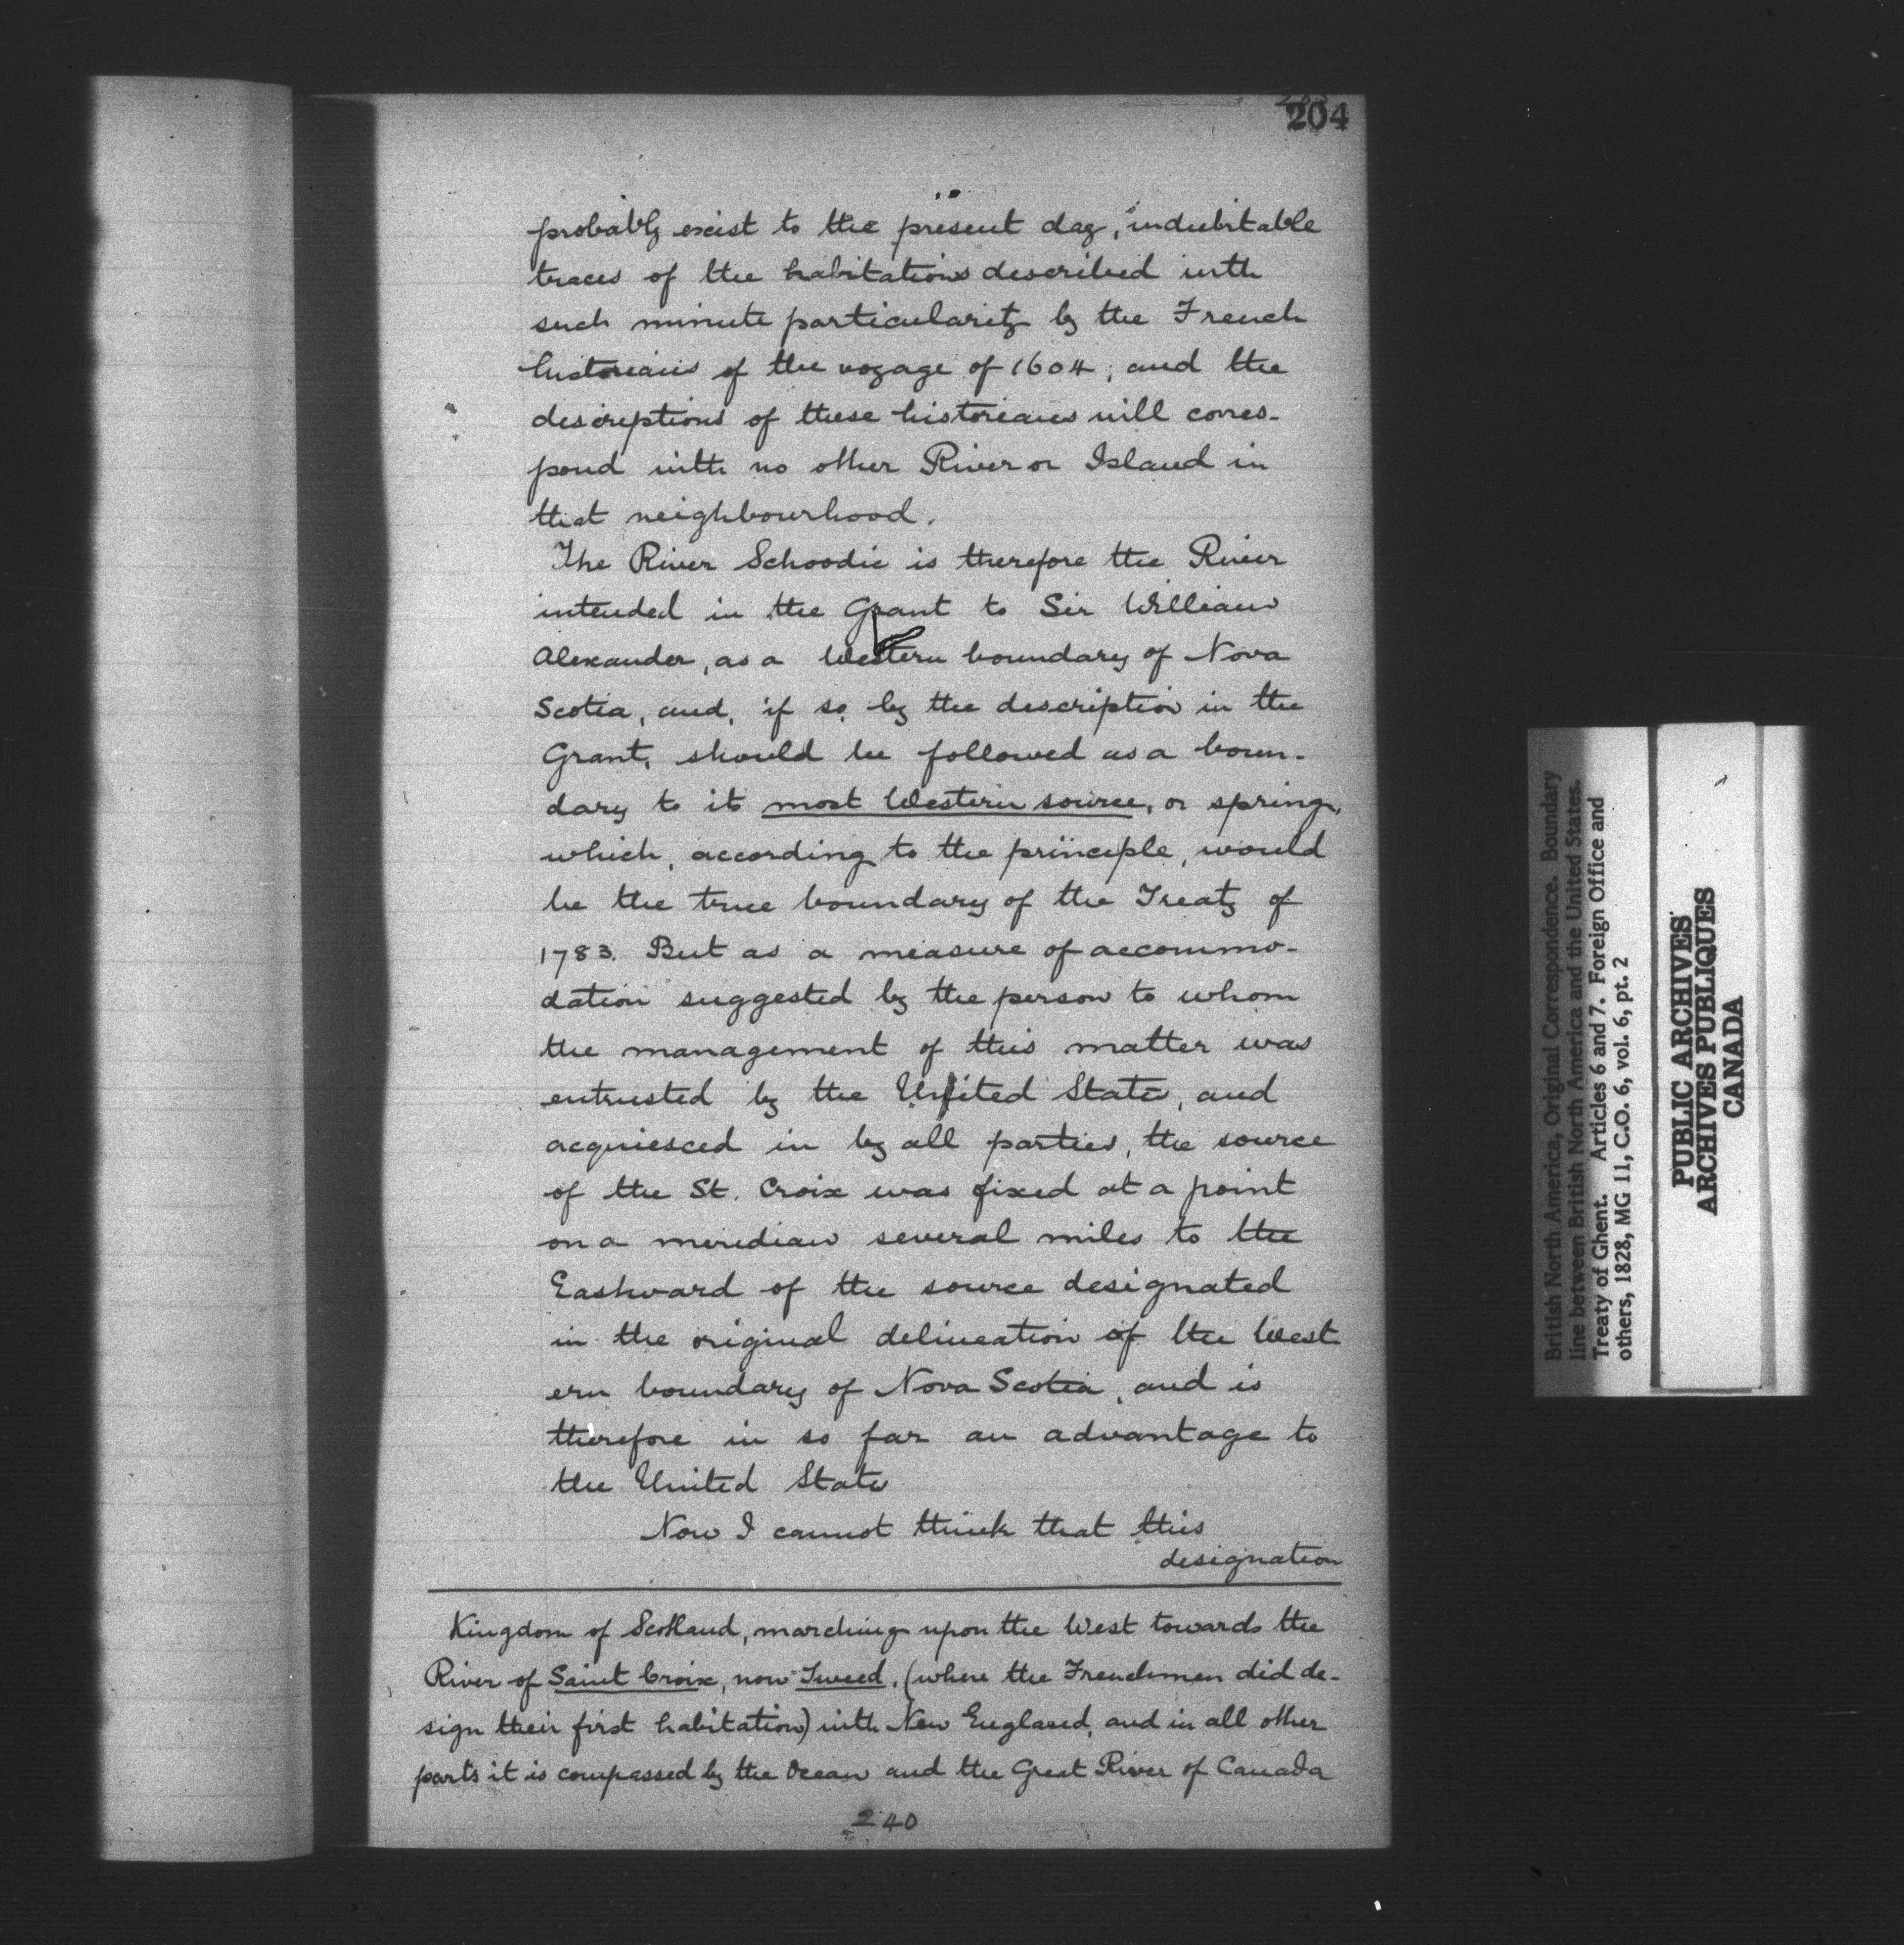 204
probably exist to the present day, indubitable
traces of the habitations described with
such minute particularity by the French
historians of the voyage of 1604; and the
descriptions of these historians will corres-
pond with no other River or Island in
that neighbourhood.
The River Schoodic is therefore the River
intended in the Grant to Sir William
Alexander, as a Western boundary of Nova
Scotia, and, if so, by the description in the
Grant, should be followed as a boun-
dary to its most Western source, or spring,
which, according to the principle, would
be the true boundary of the Treaty of
1783. But as a measure of accommo-
dation suggested by the person to whom
the management of this matter was
entrusted by the United States, and
acquiesced in by all parties, the source
of the St. Croix was fixed at a point
on a meridian several miles to the
Eastward of the source designated
in the original delineation of the West
ern boundary of Nova Scotia, and is
therefore in so far an advantage to
the United States
Now I cannot think that this
designation
Kingdom of Scotland, marching upon the West towards the
River of Saint Croix, now Tweed, (where the Frenchmen did de-
sign their first habitation) with New England, and in all other
parts it is compassed by the Ocean and the Great River of Canada
240
British North America, Original Correspondence. Boundary
line between British North America and the United States.
Treaty of Ghent. Articles 6 and 7. Foreign Office and
others, 1828, MG 11, C.O. 6, vol. 6, pt. 2
PUBLIC ARCHIVES
ARCHIVES PUBLIQUES
CANADA